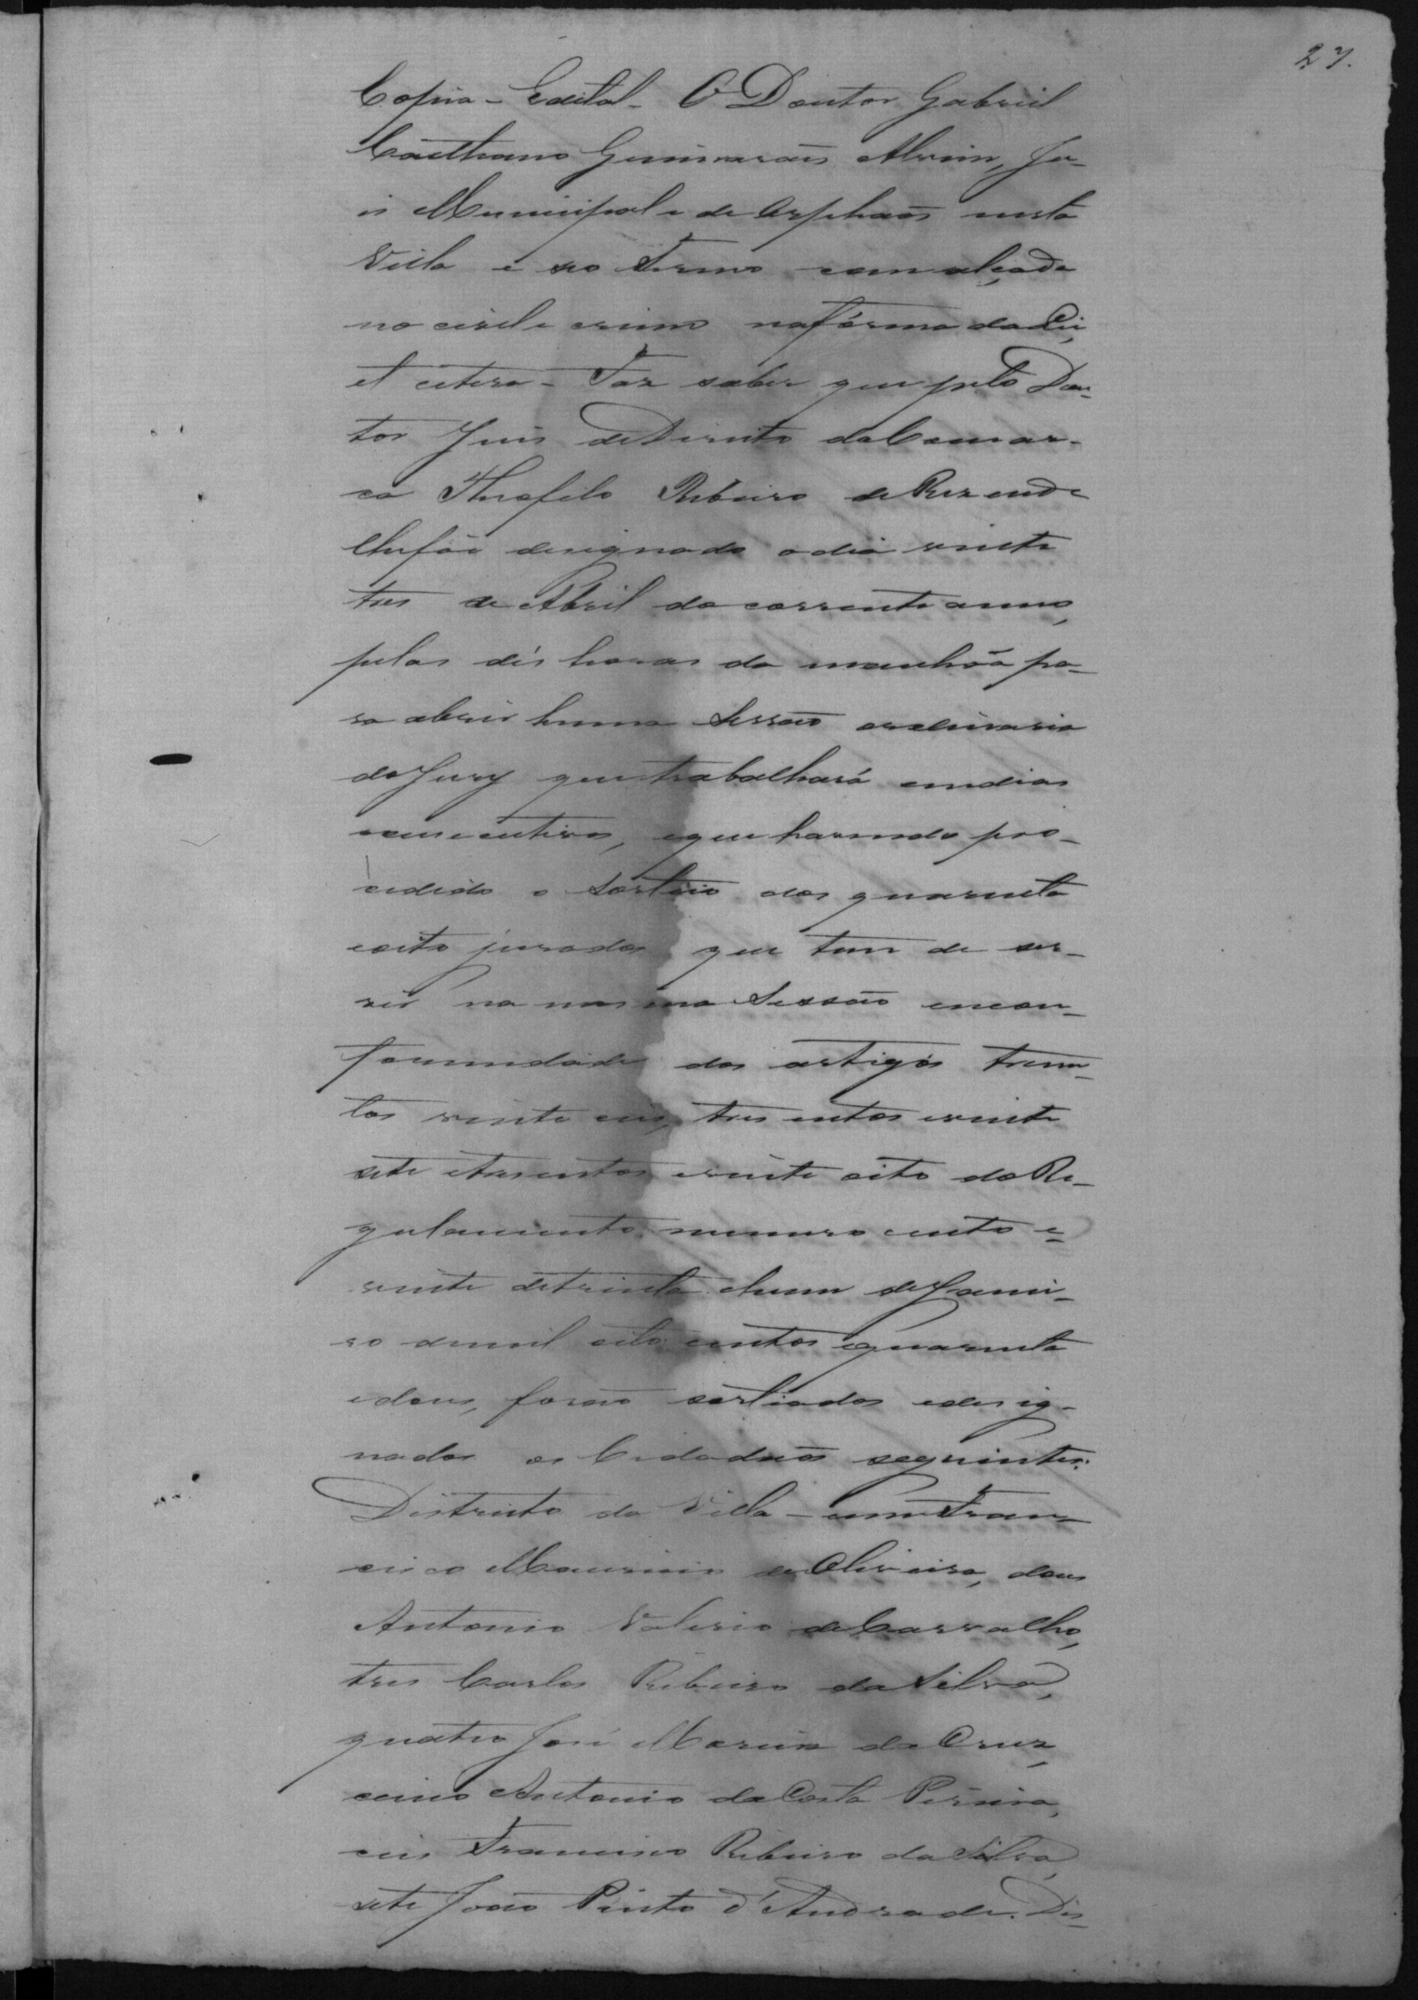 27.
Copia - Edital - O Doutor Gabriel
Caethano Guimaraẽs Alvim, Ju-
is Municipal e de Orphaõs nesta
Villa e seo Termo com alçada
no civil e crime na fórma da Lei,
et cetera - Faz saber que pelo Dou-
tor Juis de Direito da Comar-
ca Theofilo Ribeiro de Rezende
lhe foi designado o dia vinte
tres de Abril do corrente anno,
pelas dés horas da manhãa pa-
ra abrir huma Sessaõ ordinaria
do Jury que trabalhará em dias
consecutivos, e que havendo pro-
cedido o sorteio dos quarenta
e oito jurados que tem de ser-
vir na mesma Sessaõ em con-
formidade dos artigos trezen-
tos vinte seis, tres centos e vinte
sete e tresentos e vinte oito do Re-
gulamento numero cento e
vinte de trinta e hum de Janei-
ro de mil oito centos e quarenta
e dous, foraõ sortiados e desig-
nados os Cidadaõs seguintes:
Districto da Villa - um Fran-
cisco Mauricio de Oliveira, dous
Antonio Valerio de Carvalho,
tres Carlos Ribeiro da Silva,
quatro José Maria da Cruz,
cinco Antonio da Costa Pereira,
seis Francisco Ribeiro da Silva,
sete Joaõ Pinto d'Andrade. Dis-